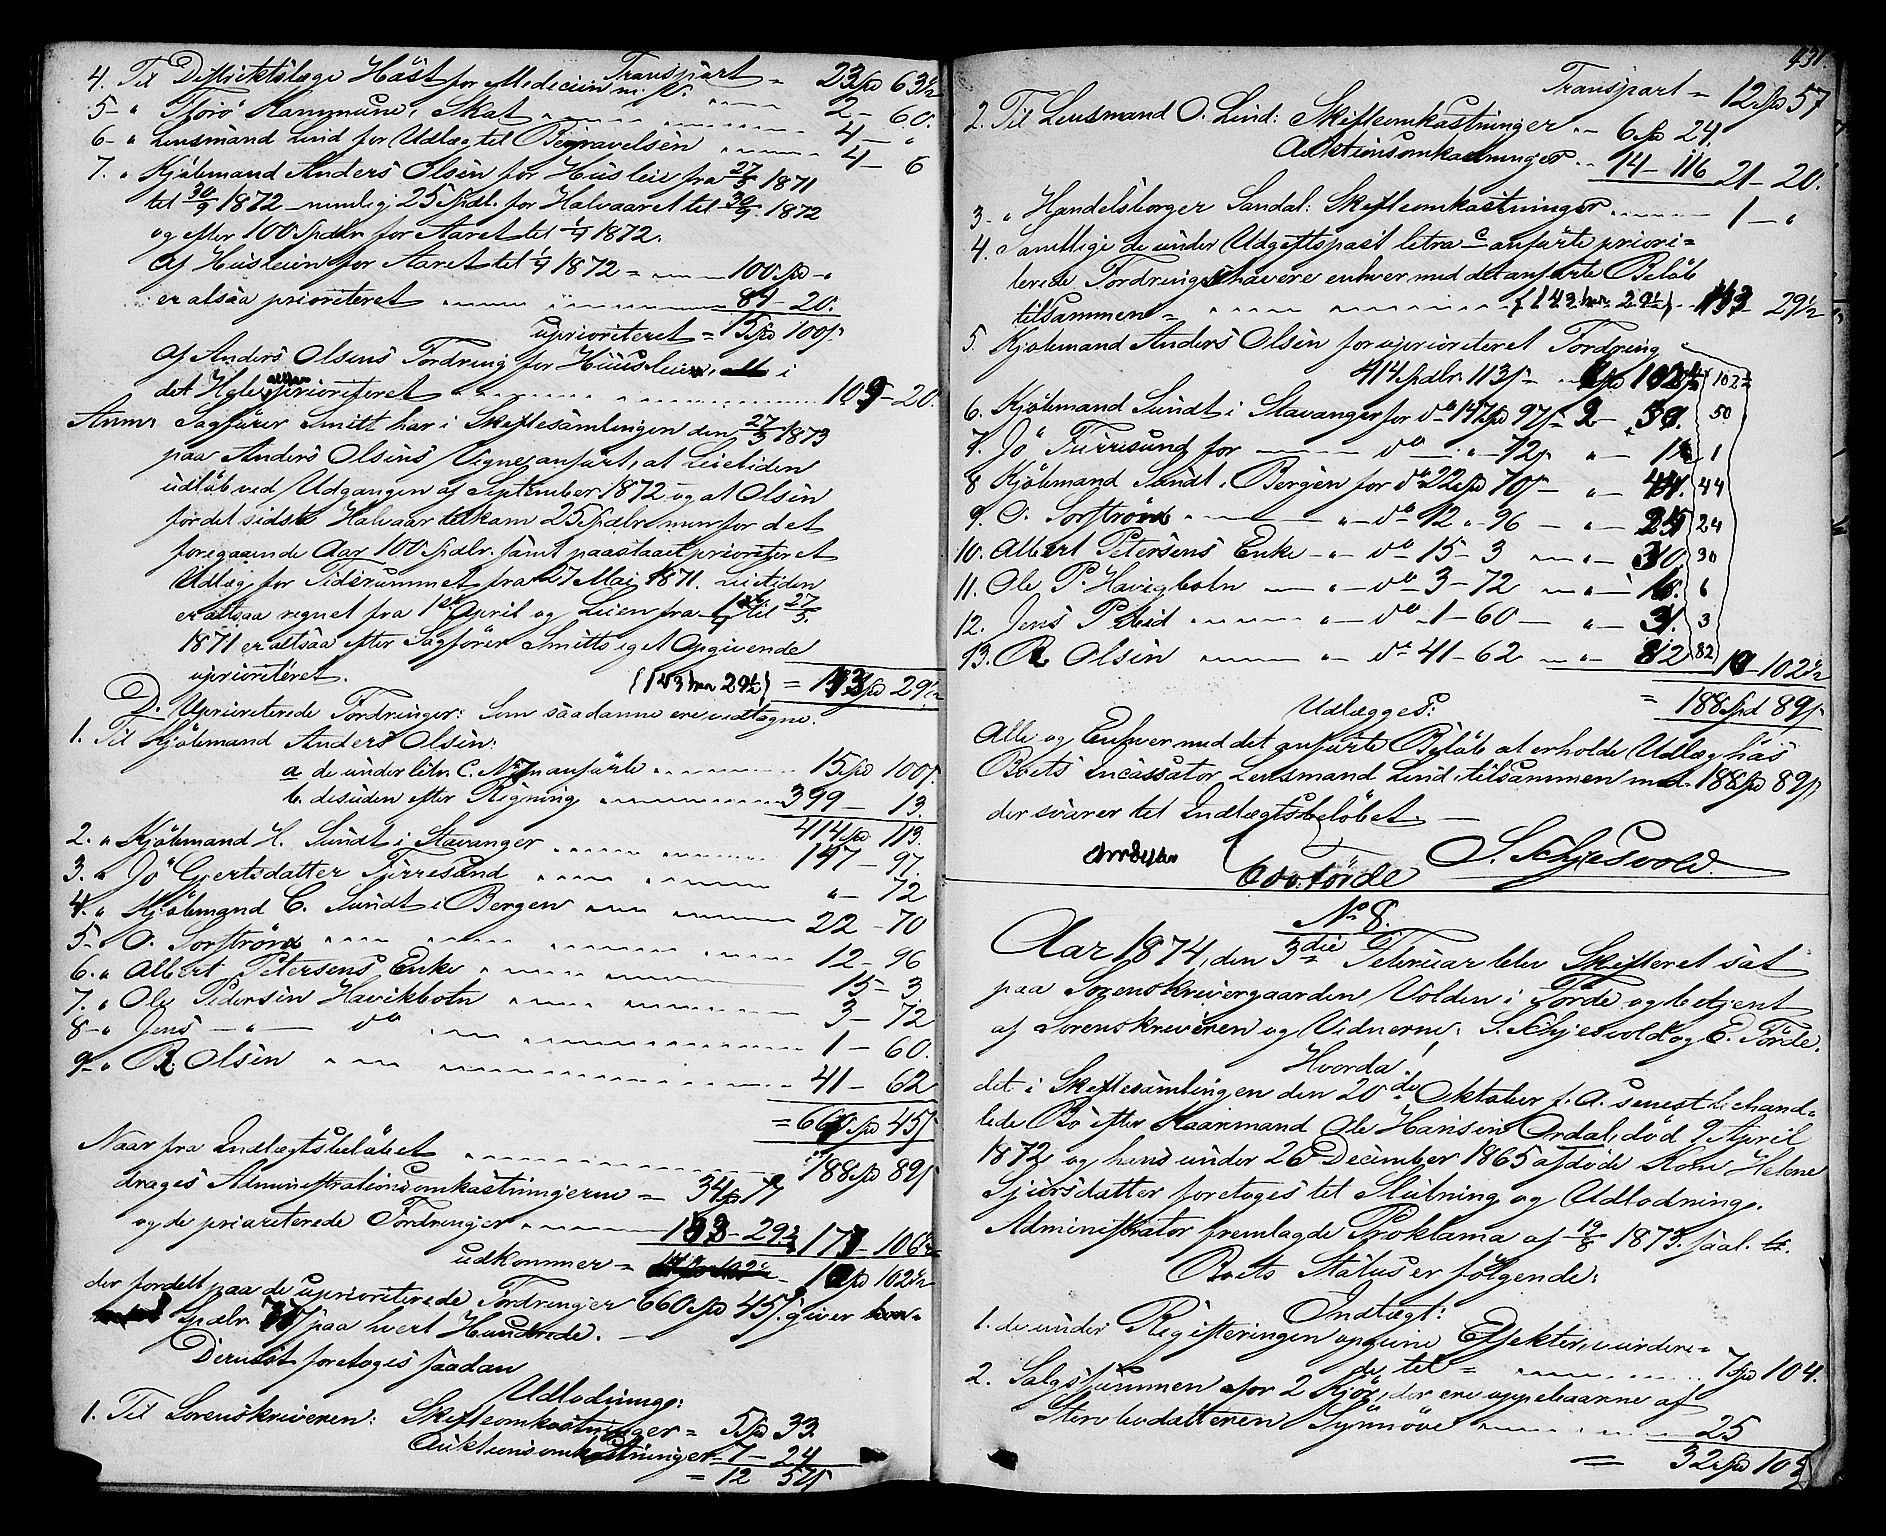 Transport = 23 Spd 63½
4. Til Distriktslæge Häst for Medecin m. V. 2 - 60.
5 - " Florö Kommune, Skat 4 - "
6 - " Lensmand Lind for Udlæg til Begravelsen 4 - 6
7. " Kjöbmand Anders Olsen for Husleie fra 27/5 1871
til 30/9 1872 - nemlig 25 Spdl. for Halvaaret til 30/9 1872
og efter 100 Spdlr. for Aaret til 1/4 1872.
Af Husleien for Aaret til 1/4 1872 = 100 Spd - "
er altsaa prioriteret 84 - 20.
uprioriteret = 15 Spd 100 s.
Af Anders Olsens Fordring for Huusleie, i
det Hele altsaa prioriteret 109 - 20.
Anm. Sagförer Smitt har i Skiftesamlingen den 27/3 1873
paa Anders Olsens Vegne anfört, at Leietiden
udlöb ved Udgangen af September 1872 og at Olsen
for det sidste Halvaar tilkom 25 Spdlr. men for det
foregaaende Aar 100 Spdlr. samt paastaaet prioriteret
Udlæg for Tidsrummet fra 27 Mai 1871. Leietiden
er altsaa regnet fra 1ste April og Leien fra 1/4 til 27/5.
1871 er altsaa efter Sagförer Smitts eget Opgivende
uprioriteret. (143 29½) = 143 Spd 29½
D. Uprioriterede Fordringer: Som saadanne ere vedtagne.
1. Til Kjöbmand Anders Olsen:
a de under litr. C. No 7 anförte 15 Spd 100 s.
b. desuden efter Regning 399 - 13.
414 Spd 113.
2. " Kjöbmand H. Sundt i Stavanger 147 - 97.
3. " Jö Gjertsdatter Furresund " - 72
4. " Kjöbmand C. Sundt i Bergen 22 - 70
5 - " O. Sorström 12 - 96
6. " Albert Petersens Enke 15 - 3
7. " Ole Pedersen Havikbotn 3 - 72
8 - " Jens - " - do 1 - 60.
9 - " R. Olsen 41 - 62
= 660 Spd 45 s.
Naar fra Indtægtsbelöbet 188 Spd 89 s
drages Administrationsomkostningerne = 34 Spd 77
og de prioriterede Fordringer 143 - 29½ 177 - 106½
udkommer = 10 Spd 102½
der fordelt paa de uprioriterede Fordringer 660 Spd 45 s. giver
Spdlr. paa hvert Hundrede.
Dernæst foretoges saadan
Udlodning:
1. Til Sorenskriveren: Skifteomkostninger = 5 Spd 33.
Auktionsomkostninger - 7 - 24
= 12 57 s
431
Transport = 12 Spd 57
2. Til Lensmand O. Lind: Skifteomkostninger 6 Spd 24.
Auktionsomkostninger 14 - 116 21 - 20.
3 - " Handelsborger Sandal: Skifteomkostninger 1 - "
4. Samtlige de under Udgiftspost litra C anförte priori=
terede Fordringshavere enhver med det anförte Belöb
tilsammen = (143 29½) 143 29½
5. Kjöbmand Anders Olsen for uprioriteret Fordring
414 Spdlr. 113 s 102½
6. Kjöbmand Sundt i Stavanger for do 147 Spd 97 s 2 - 50. 50
7. Jö Furresund for do " - 72 s " - 1 1
8 Kjöbmand Sundt i Bergen for do 22 Spd 70 s - " - 44. 44
9. O. Sorström " - do 12 " 96 - " - 24 24
10. Albert Petersens Enke - " - do 15 - 3 - " - 30 30
11. Ole P. Havigbotn - " - do 3 - 72 - " - 6. 6
12. Jens P. do 1 - 60 - " - 3. 3
13. R. Olsen - " - do 41 - 62 - " - 82 82 10 - 102½
= 188 Spd 89 s
Udlægges:
Alle og Enhver med det anförte Belöb at erholde Udlæg hos
Boets Incassator, Lensmand Lind, tilsammen med 188 Spd 89 s
der svarer til Indtægtsbelöbet. -
E. Förde S. Schjesvold
No 8.
Aar 1874, den 3die Februar blev Skifteret sat
paa Sorenskrivergaarden Volden i Förde og betjent
af Sorenskriveren og Vidnerne: S. Schjesvold og E. Förde.
Hvorda!
det i Skiftesamlingen den 20de Oktober f. A. senest behand=
lede Bo efter Kaarmand Ole Hansen Ordal, död 9 April
1872, og hans under 26 December 1865 afdöde Kone, Helene
Sjursdatter foretoges til Slutning og Udlodning.
Administrator fremlagde Proklama af 19/8 1873. saal.
Boets Status er fölgende:
Indtægt:
1. de under Registeringen opgivne Effekter, vurdere=
de til = 7 Spd 104.
2. Salgssummen for 2 Kjör, der ere oppebaarne af
Stervbodatteren Synnöve 25
= 32 Spd 104